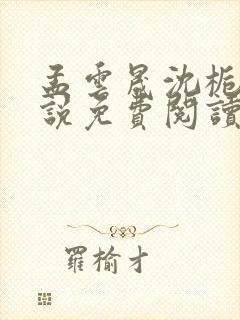 孟雲晟沈栀
說免費閱讀
羅榆才